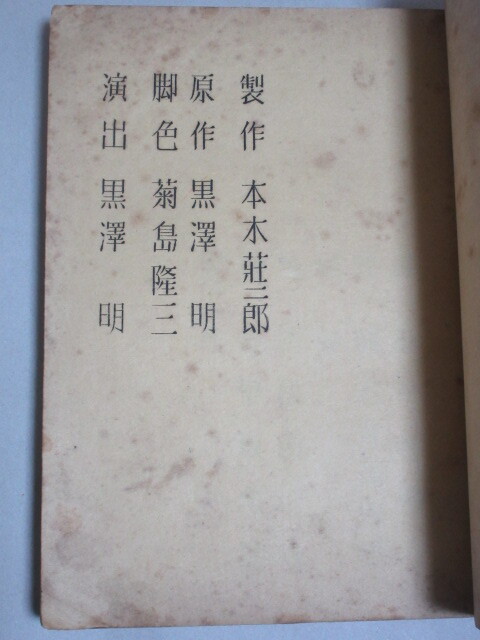 製作 本木莊二郎
原作 黒澤 明
脚色 菊島隆三
演出 黒澤 明